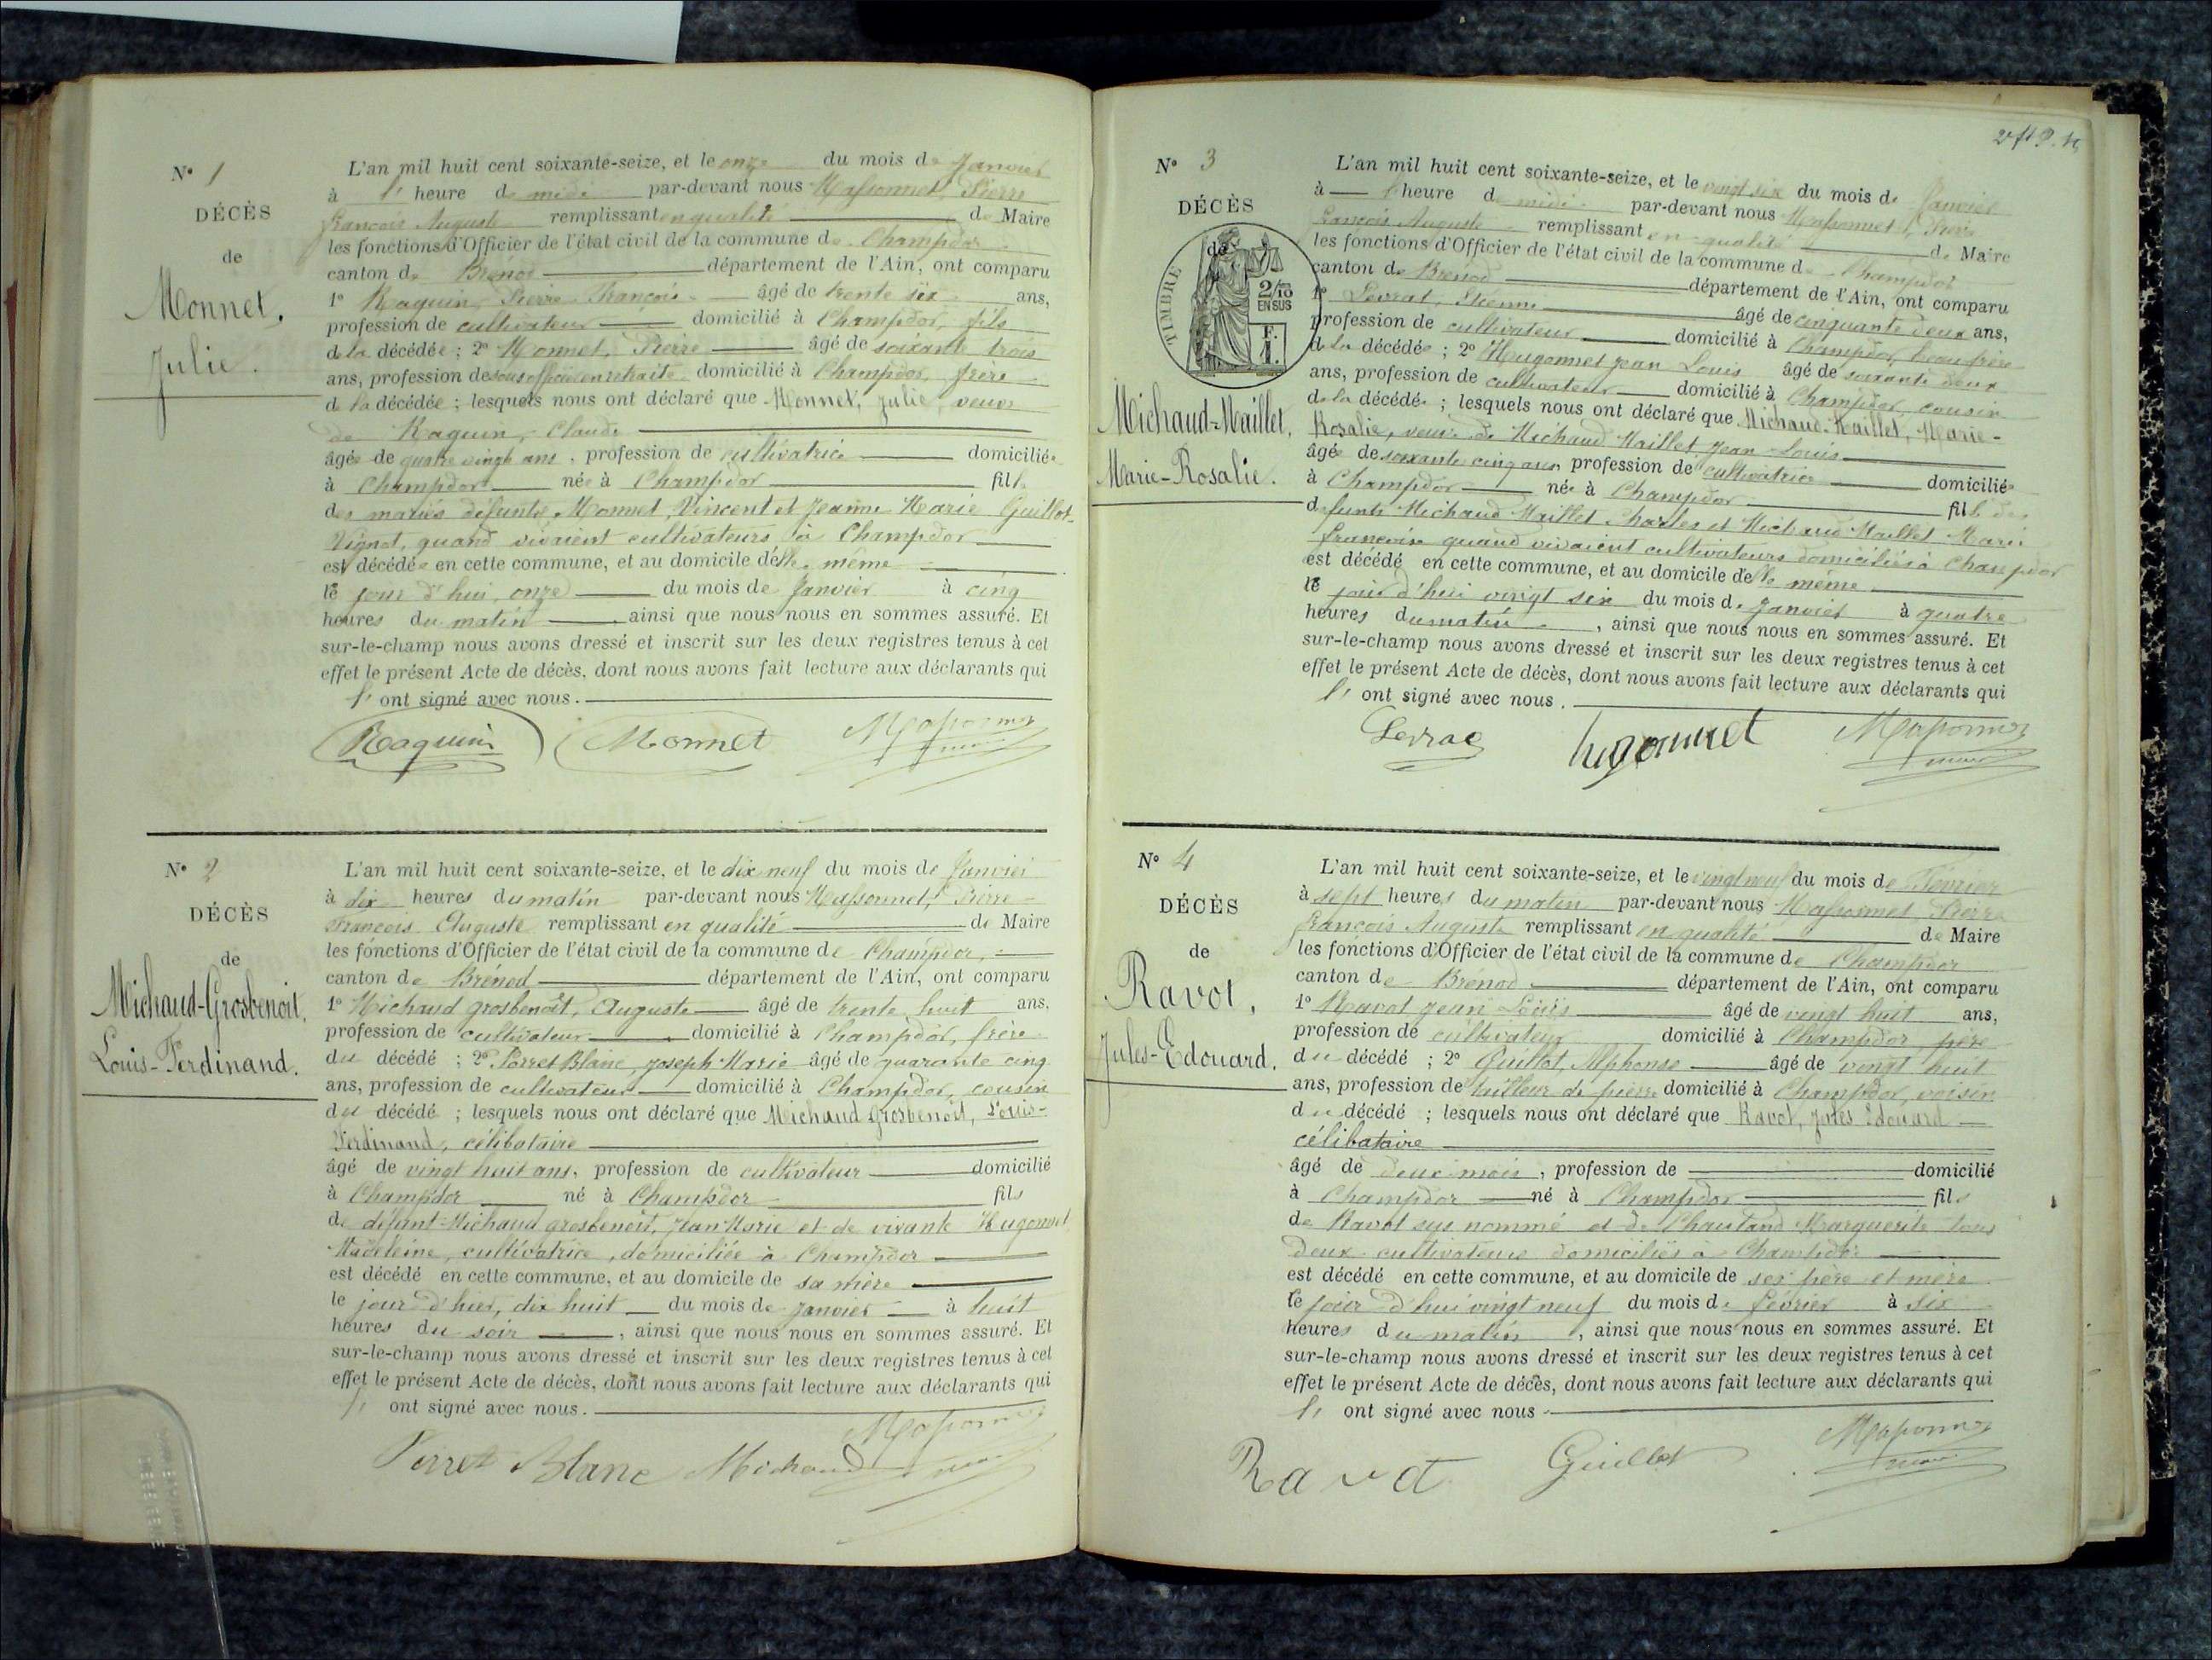 N° 1
DÉCÈS
de
Monnet,
Julie.
L'an mil huit cent soixante-seize, et le onze du mois de Janvier
à l' heure de midi par-devant nous Massonnet, Pierre
François Auguste remplissant en qualité de Maire
les fonctions d'Officier de l'état civil de la commune de Champdor
canton de Brénod département de l'Ain, ont comparu
1° Raquin, Pierre François âgé de trente six ans,
profession de cultivateur domicilié à Champdor, fils
de la décédée ; 2° Monnet, Pierre âgé de soixante trois
ans, profession de sous officier en retraite domicilié à Champdor, frère
de la décédée ; lesquels nous ont déclaré que Monnet, Julie, veuve
de Raquin, Claude
âgée de quatre vingt ans, profession de cultivatrice domiciliée
à Champdor née à Champdor fille
des mariés défunts Monnet, Vincent et Jeanne Marie Guillot-
Vignot, quand vivaient cultivateurs à Champdor
est décédée en cette commune, et au domicile d'elle même
le jour d'hui onze du mois de Janvier à cinq
heures du matin, ainsi que nous nous en sommes assuré. Et
sur-le-champ nous avons dressé et inscrit sur les deux registres tenus à cet
effet le présent Acte de décès, dont nous avons fait lecture aux déclarants qui
l' ont signé avec nous.
Raquin Monnet Massonnet
maire
N° 2
DÉCÈS
de
Michaud-Grosbenoit,
Louis-Ferdinand.
L'an mil huit cent soixante-seize, et le dix neuf du mois de Janvier
à dix heures du matin par-devant nous Massonnet, Pierre
François Auguste remplissant en qualité de Maire
les fonctions d'Officier de l'état civil de la commune de Champdor,
canton de Brénod département de l'Ain, ont comparu
1° Michaud grosbenoît, Auguste âgé de trente huit ans,
profession de cultivateur domicilié à Champdor, frère
du décédé ; 2° Perret Blanc, Joseph Marie âgé de quarante cinq
ans, profession de cultivateur domicilié à Champdor, cousin
du décédé ; lesquels nous ont déclaré que Michaud Grosbenoit, Louis-
Ferdinand, célibataire
âgé de vingt huit ans, profession de cultivateur domicilié
à Champdor né à Champdor fils
de défunt Michaud grosbenoit, Jean Marie et de vivante Hugonnet
Madeleine, cultivatrice, domiciliée à Champdor
est décédé en cette commune, et au domicile de sa mère
le jour d'hier, dix huit du mois de Janvier à huit
heures du soir, ainsi que nous nous en sommes assuré. Et
sur-le-champ nous avons dressé et inscrit sur les deux registres tenus à cet
effet le présent Acte de décès, dont nous avons fait lecture aux déclarants qui
l' ont signé avec nous.
Perret Blanc Michaud Massonnet
maire
N° 3
DÉCÈS
de
TIMBRE
2/10
EN SUS
Michaud-Maillet,
Marie-Rosalie.
L'an mil huit cent soixante-seize, et le vingt six du mois de Janvier
à l'heure de midi par-devant nous Massonnet, Pierre
François Auguste remplissant en qualité de Maire
les fonctions d'Officier de l'état civil de la commune de Champdor
canton de Brénod département de l'Ain, ont comparu
1° Levrat, Etienne âgé de cinquante deux ans,
profession de cultivateur domicilié à Champdor, beau frère
de la décédée ; 2° Hugonnet Jean Louis âgé de soixante deux
ans, profession de cultivateur domicilié à Champdor, cousin
de la décédée ; lesquels nous ont déclaré que Michaud-Maillet, Marie-
Rosalie, veuve de Michaud Maillet, Jean Louis
âgée de soixante cinq ans, profession de cultivatrice domiciliée
à Champdor née à Champdor fille des
défunts Michaud Maillet Charles et Michaud Maillet Marie
françoise quand vivaient cultivateurs domiciliés à Champdor
est décédé en cette commune, et au domicile d'elle même
le jour d'hui vingt six du mois de Janvier à quatre
heures du matin, ainsi que nous nous en sommes assuré. Et
sur-le-champ nous avons dressé et inscrit sur les deux registres tenus à cet
effet le présent Acte de décès, dont nous avons fait lecture aux déclarants qui
l' ont signé avec nous.
Levrat hugonnet Massonnet
maire
N° 4
DÉCÈS
de
Ravot,
Jules-Edouard.
L'an mil huit cent soixante-seize, et le vingt neuf du mois de Février
à sept heures du matin par-devant nous Massonnet, Pierre
François Auguste remplissant en qualité de Maire
les fonctions d'Officier de l'état civil de la commune de Champdor
canton de Brénod département de l'Ain, ont comparu
1° Ravot Jean Louis âgé de vingt huit ans,
profession de cultivateur domicilié à Champdor, père
du décédé ; 2° Guillot, Alphonse âgé de vingt huit
ans, profession de tailleur de pierre domicilié à Champdor, voisin
du décédé ; lesquels nous ont déclaré que Ravot, Jules Edouard
célibataire
âgé de deux mois, profession de domicilié
à Champdor né à Champdor fils
de Ravot sus nommé et de Chautand Marguerite tous
deux cultivateurs domiciliés à Champdor
est décédé en cette commune, et au domicile de ses père et mère
le jour d'hui vingt neuf du mois de février à six
heures du matin, ainsi que nous nous en sommes assuré. Et
sur-le-champ nous avons dressé et inscrit sur les deux registres tenus à cet
effet le présent Acte de décès, dont nous avons fait lecture aux déclarants qui
l' ont signé avec nous
Ravot Guillot Massonnet
maire